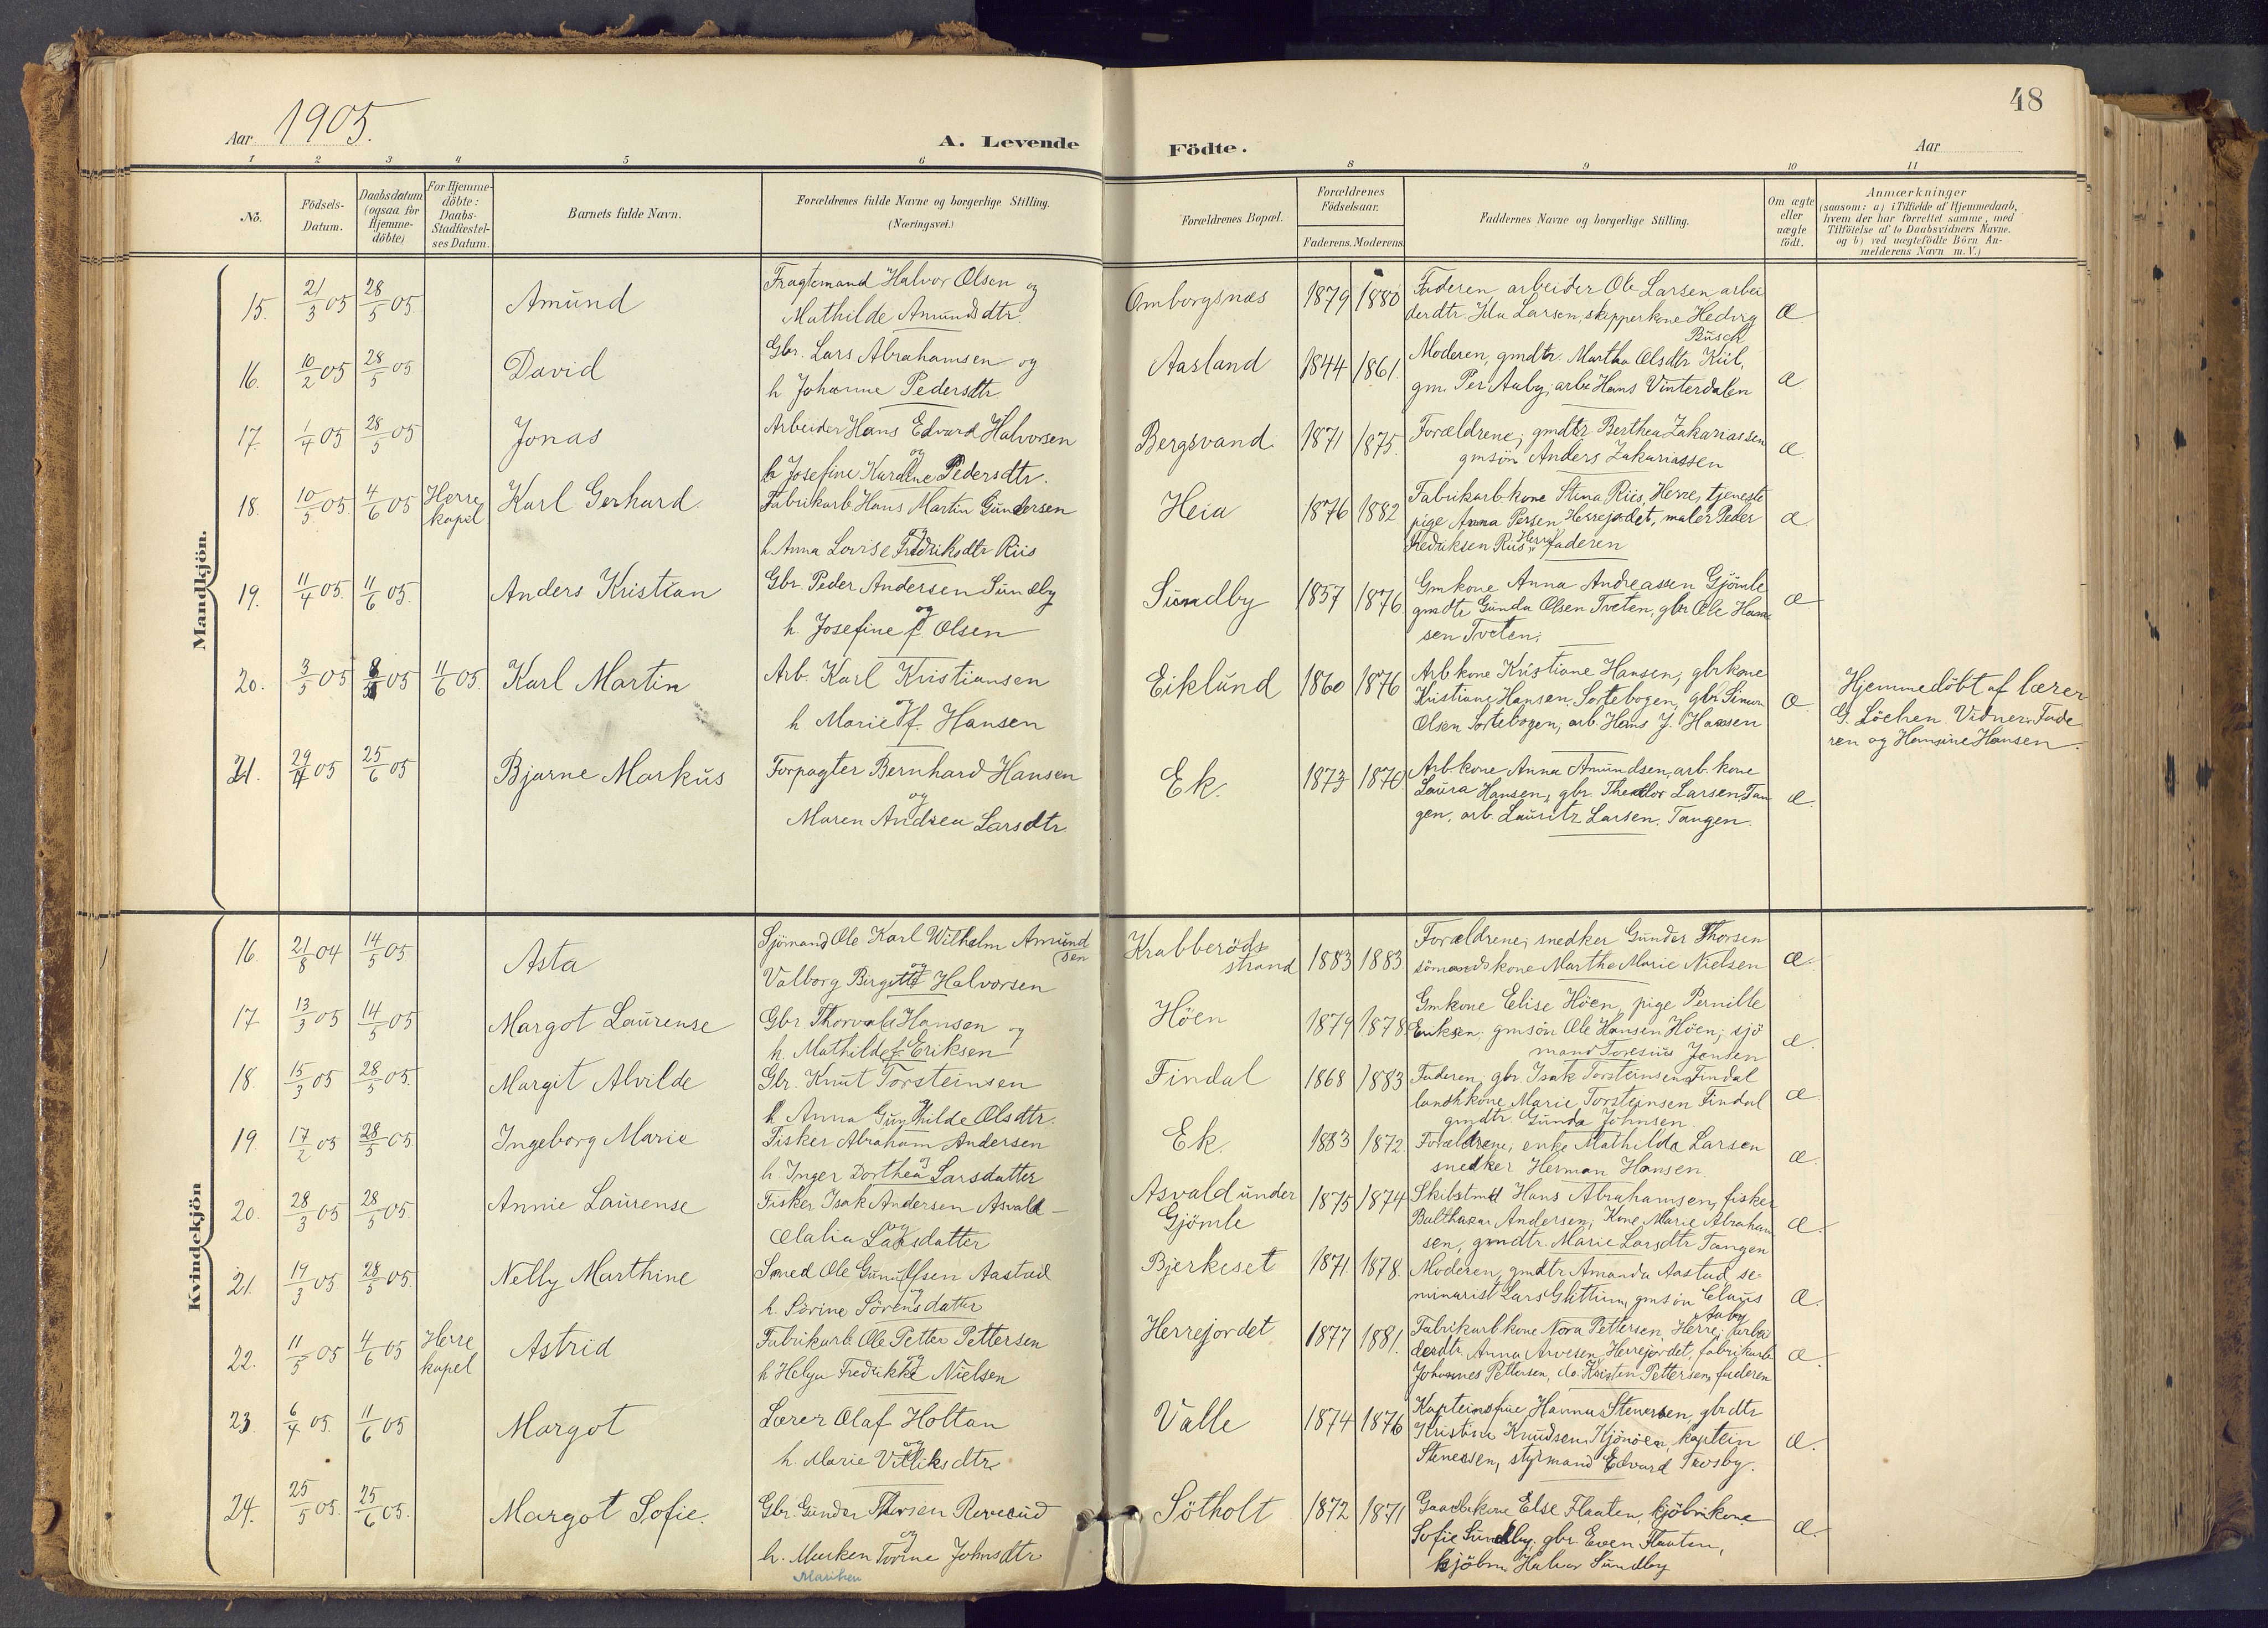 Aar 1905.
A. Levende
Födte.
48
Aar
1 2 3 4 5 6 8 9 10 11
No.
Födsels-
Datum.
Daabsdatum
(ogsaa for
Hjemme-
döbte)
For Hjemme-
döbte:
Daabs-
Stadfæstel-
ses Datum.
Barnets fulde Navn.
Forældrenes fulde Navne og borgerlige Stilling.
(Næringsvei.)
Forældrenes Bopæl.
Forældrenes
Födselsaar.
Faderens. Moderens
Faddernes Navne og borgerlige Stilling.
Om ægte
eller
uægte
födt.
Anmærkninger
(saasom: a) i Tilfælde af Hjemmedaab,
hvem der har forrettet samme, med
Tilföielse af to Daabsvidners Navne.
og b) ved uegtefödte Börn An-
melderens Navn m. V.)
Mandkjön.
15. 21/3 05 28/5 05. Amund
Fragtemand Halvor Olsen og
Mathilde Amundsdtr.
Omborgsnæs 1879 1880
Faderen arbeider Ole Larsen arbei
derdtr. Ida Larsen, skipperkone Hedvig
Busch
æ
16. 10/2 05 28/5 05 David
Gbr. Lars Abrahamsen og
h Johanne Pedersdtr.
Aasland 1844 1861.
Moderen, gmdtr. Martha Olsdtr Kül,
gm. Per Aaby, arb. Hans Vinterdalen
æ
17. 1/4 05 28/5 05 Jonas
Arbeider Hans Edvard Halvorsen
og
h Josefine Karoline Pedersdtr.
Bergsvand. 1871 1875.
Forældrene; gmdtr Berthea Zakariassen
gmsön Anders Zakariassen
æ
18. 10/5 05 4/6 05 Herre
kapel
Karl Gerhard.
Fabrikarb Hans Martin Gundersen
og
h. Anna Lovise Fredriksdtr Riis
Heia 1876 1882
Fabrikarbkone Stina Riis, Herre, tjeneste
pige Anna Persen Herrejordet, maler Peder
Fredriksen Riis, Herre, faderen
æ
19. 11/4 05. 11/6 05. Anders Kristian
Gbr. Peder Andersen Sundby
og
h. Josefine f. Olsen
Sundby 1857 1876
Gmkone Anna Andreassen Gjömle
gmdtr Gunda Olsen Tveten, gbr Ole Han
sen Tveten;
æ
20. 3/5 05 8/5 05 11/6 05. Karl Martin
Arb. Karl Kristiansen
og
h Marie f. Hansen
Eiklund 1860 1876
Arbkone Kristiane Hansen, gbrkone
Kristiane Hansen Sortebogen, gbr Simon
Olsen Sortebogen, arb. Hans J. Hansen
æ
Hjemmedöbt af lærer
G. Löchen. Vidner: Fade
ren og Hansine Hansen.
21. 29/4 05 25/6 05 Bjarne Markus
Forpagter Bernhard Hansen
og
Maren Andrea Larsdtr.
Ek. 1873 1870
Arb.kone Anna Amundsen, arb. kone
Laura Hansen, gbr. Theodor Larsen, Tan
gen, arb Lauritz Larsen. Tangen.
æ.
Kvindekjön
16. 21/8 04 14/5 05. Asta
Sjömand Ole Karl Wilhelm Amund
sen
og
Valborg Birgitte Halvorsen
Krabberöds
strand 1883 1883
Forældrene; snedker Gunder Thorsen
sömandskone Marthe Marie Nielsen
æ.
17. 13/3 05 14/5 05 Margot Laurense
Gbr. Thorvald Hansen og
h. Mathilde f. Eriksen
Höen 1879 1878
Gmkone Elise Höen, pige Pernille
Eriksen, gmsön Ole Hansen Höen; sjö
mand Toresius Jensen
æ.
18. 15/3 05 28/5 05. Margit Alvilde
Gbr. Knut Torsteinsen
h Anna Gunhilde Olsdtr.
Findal 1868 1883
Faderen, gbr. Isak Torsteinsen Findal
landhkone Marie Torsteinsen Findal
gmdtr Gunda Johnsen.
æ
19. 17/2 05 28/5 05. Ingeborg Marie
Fisker Abraham Andersen
og
h Inger Dorthea Larsdatter
Ek. 1883 1872.
Forældrene, enke Mathilde Larsen
snedker Herman Hansen
æ.
20. 28/3 05 28/5 05. Annie Laurense
Fisker Isak Andersen Asvald -
og
Olalia Larsdatter
Asvald under
Gjömle 1875 1874
Skibstmd Hans Abrahamsen, fisker
Balthazar Andersen, Kone Marie Abraham
sen, gmdtr. Marie Larsdtr Tangen
æ.
21. 19/3 05. 28/5 05. Nelly Marthine
Smed Ole Gunulfsen Aastad
og
h. Sörine Sörensdatter
Bjerkeset 1871. 1878.
Moderen, gmdtr Amanda Aastad, se
minarist Lars Glittum, gmsön Claus
Aaby
æ.
22. 11/5 05 4/6 05 Herre
kapel
Astrid
Fabrikarb. Ole Petter Pettersen
og
h Helga Fredrikke Nielsen
Herrejordet 1877 1881.
Fabrikarbkone Nora Pettersen, Herre; arbei
derdtr. Anna Arvesen, Herrejordet, fabrikarb
Johannes Pettersen, do. Kristen Pettersen, faderen
æ.
23. 6/4 05. 11/6 05 Margot
Lærer Olaf Holtan
og
h. Marie Villiksdtr.
Valle 1874 1876
Kapteinsfrue Hanna Stenersen, gbrdtr
Kristine Knudsen Kjönöen, kaptein
Stenersen, styrmand Edvard Trosby.
æ.
24. 25/5 05. 25/6 05. Margot Sofie.
Gbr Gunder Thorsen Rervesud
og
h. Marken Torine Johnsdtr
Marthen
Sötholt 1872 1871
Gaardbrkone Else Flaaten, kjöbmkone
Sofie Sundby, gbr. Even Flaaten,
kjöbm. Halvor Sundby
æ.